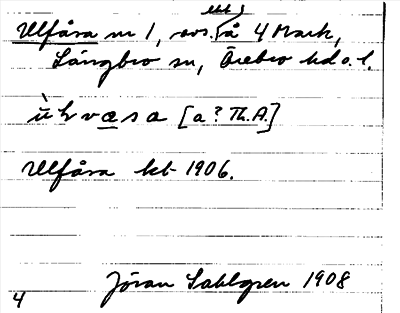 Ulfåsa nr 1, avs. å 4 Mark,
Längbro sn, Örebro hd o. l.
ùlvæsa [a? Th.A.]
Ulfåsa kb 1906.
Jöran Sahlgren 1908
4